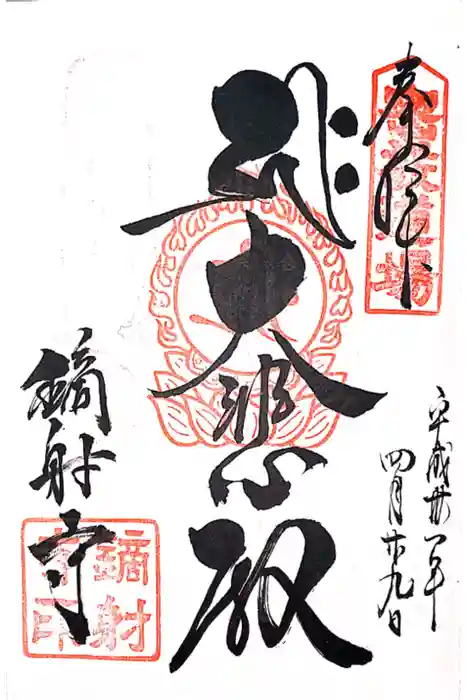 奉拝
平成卅一年
四月廿九日
大悲殿
鏑射寺
鏑射
寺印